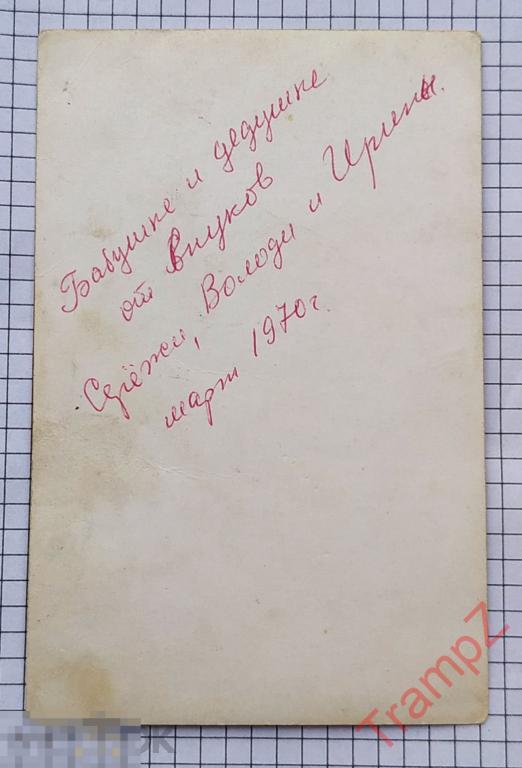 Бабушке и дедушке
от внуков
Серёжи, Володи и Ирины.
март 1970 г.
TrampZ